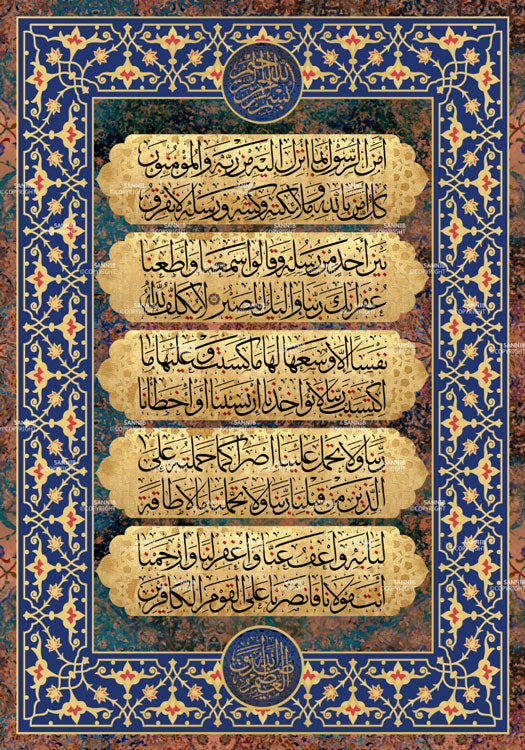 بسم الله الرحمن الرحيم
امن الرسول بما انزل اليه من ربه والمؤمنون
كل امن بالله وملائكته وكتبه ورسله لا نفرق
بين احد من رسله وقالوا سمعنا واطعنا
غفرانك ربنا واليك المصير لا يكلف الله
نفسا الا وسعها لها ما كسبت وعليها ما
اكتسبت ربنا لا تؤاخذنا ان نسينا او اخطأنا
ربنا ولا تحمل علينا اصرا كما حملته على
الذين من قبلنا ربنا ولا تحملنا ما لا طاقة
لنا به واعف عنا واغفر لنا وارحمنا
انت مولانا فانصرنا على القوم الكافرين
SANNIB
©COPYRIGHT